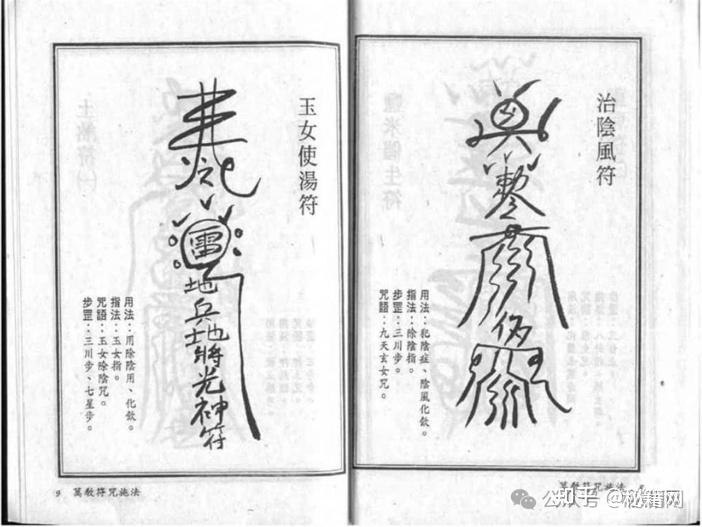 治陰風符
用法：犯陰症、陰風化飲。
指法：除陰指。
步罡：三川步。
咒語：九天玄女咒。
萬教符咒施法
玉女使湯符
雷
地兵地將光神符
用法：用除陰用、化飲。
指法：玉女指。
咒語：玉女除陰咒。
步罡：三川步、七星步。
9 萬教符咒施法
知乎 @秘籍网